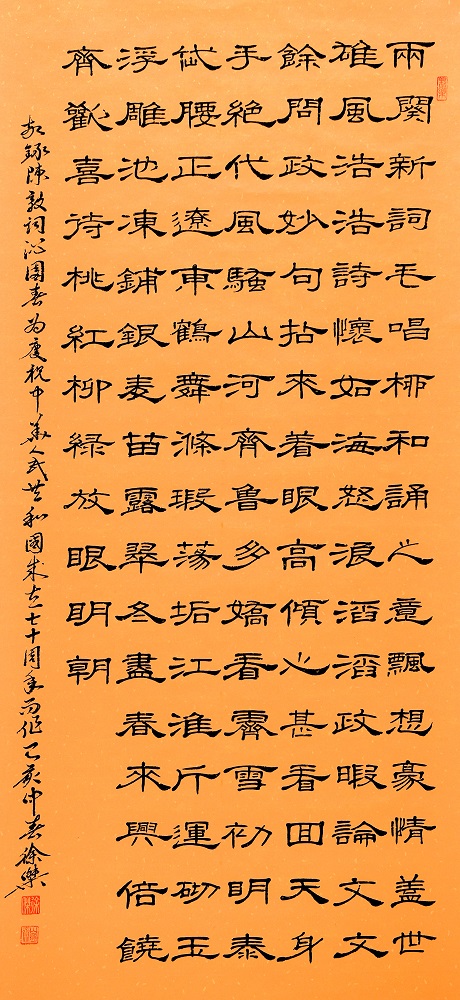 兩闋新詞毛唱柳和誦之意飄想豪情蓋世
雄風浩浩詩懷如海怒浪滔滔政暇論文文
餘問政妙句拈來着眼高傾心甚看回天身
手絕代風騷山河齊魯多嬌看霽雪初明泰
岱腰正遼東鶴舞滌瑕蕩垢江淮斤運砌玉
浮雕池凍鋪銀麥苗露翠冬盡春來興倍饒
齊歡喜待桃紅柳綠放眼明朝
敬錄陳毅詞沁園春為慶祝中華人民共和國成立七十周年而作己亥仲春徐樂